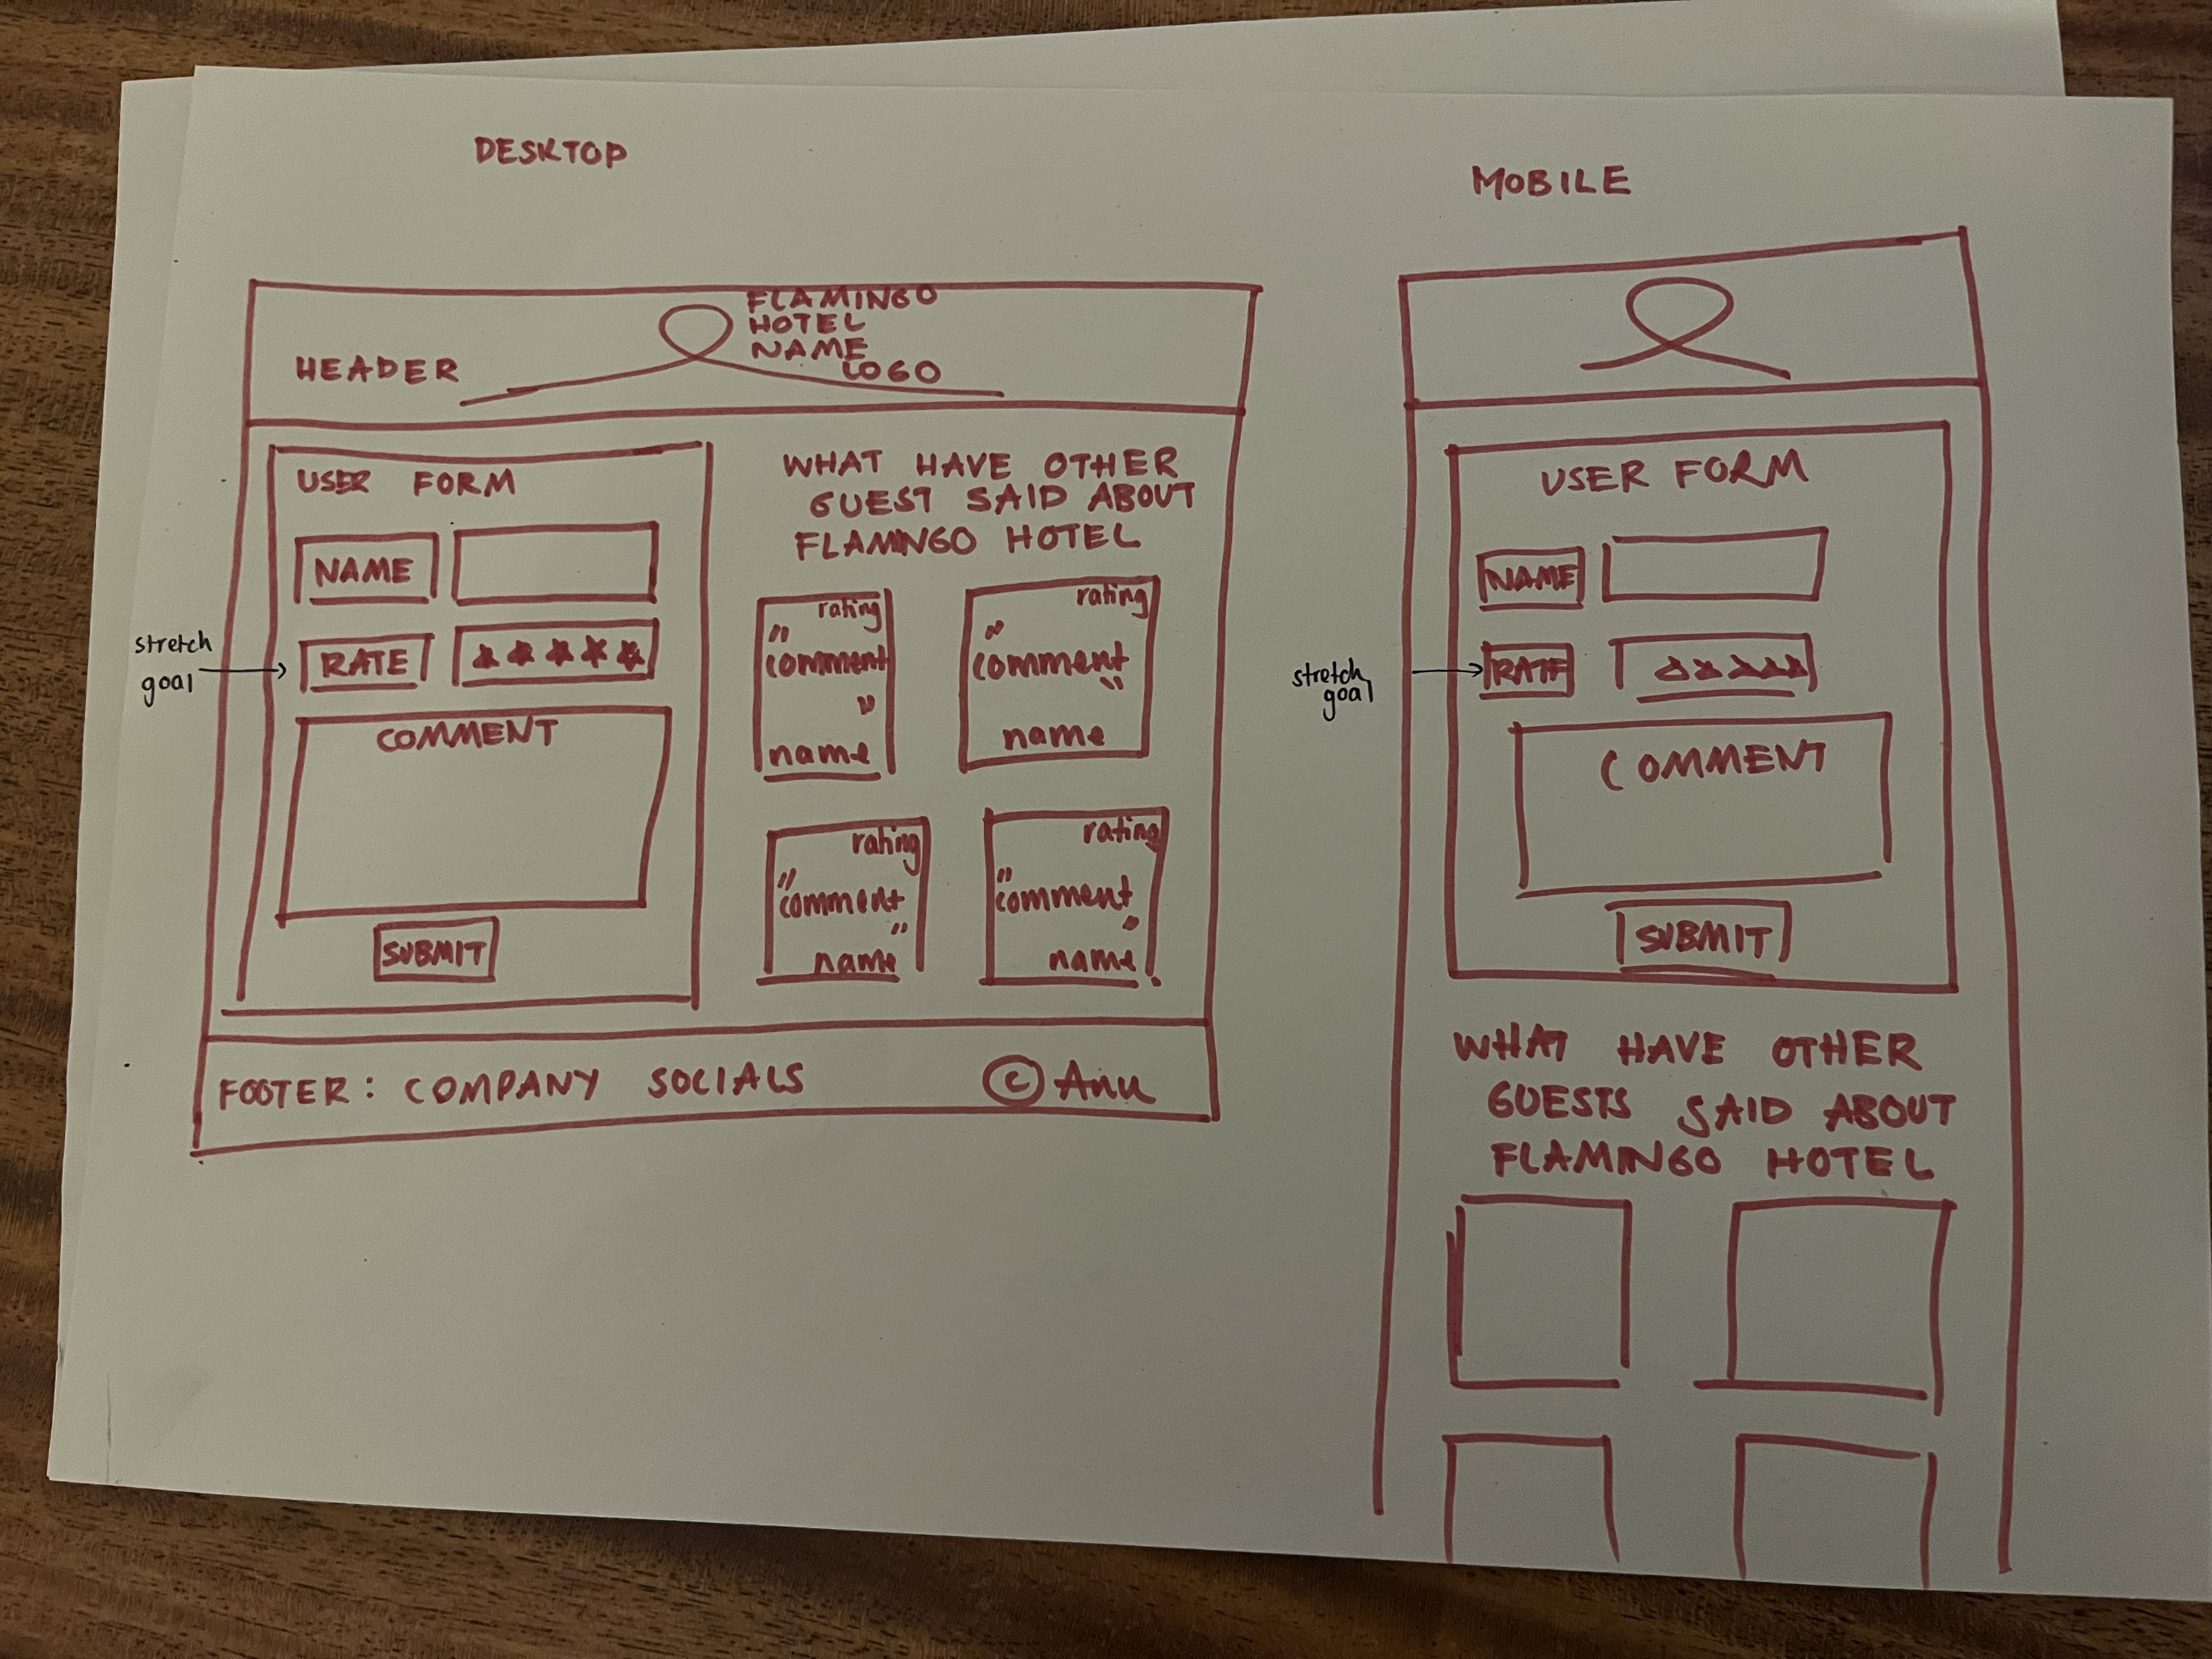 DESKTOP
HEADER
FLAMINGO
HOTEL
NAME
LOGO
USER FORM
NAME
stretch
goal
RATE
COMMENT
SUBMIT
WHAT HAVE OTHER
GUEST SAID ABOUT
FLAMINGO HOTEL
rating
"comment"
name
rating
"comment"
name
rating
"comment"
name
rating
"comment"
name
FOOTER: COMPANY SOCIALS © Anu
MOBILE
USER FORM
NAME
stretch
goal
RATE
COMMENT
SUBMIT
WHAT HAVE OTHER
GUESTS SAID ABOUT
FLAMINGO HOTEL